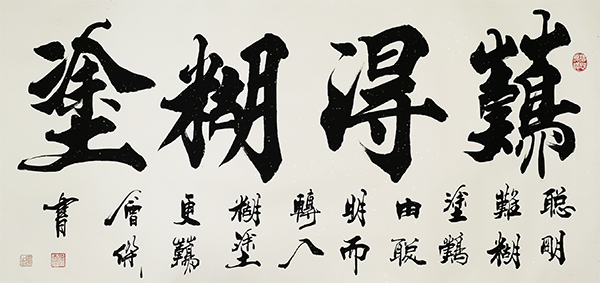 難得糊塗
聰明
難糊
塗難
由聰
明而
轉入
糊塗
更難
會
書